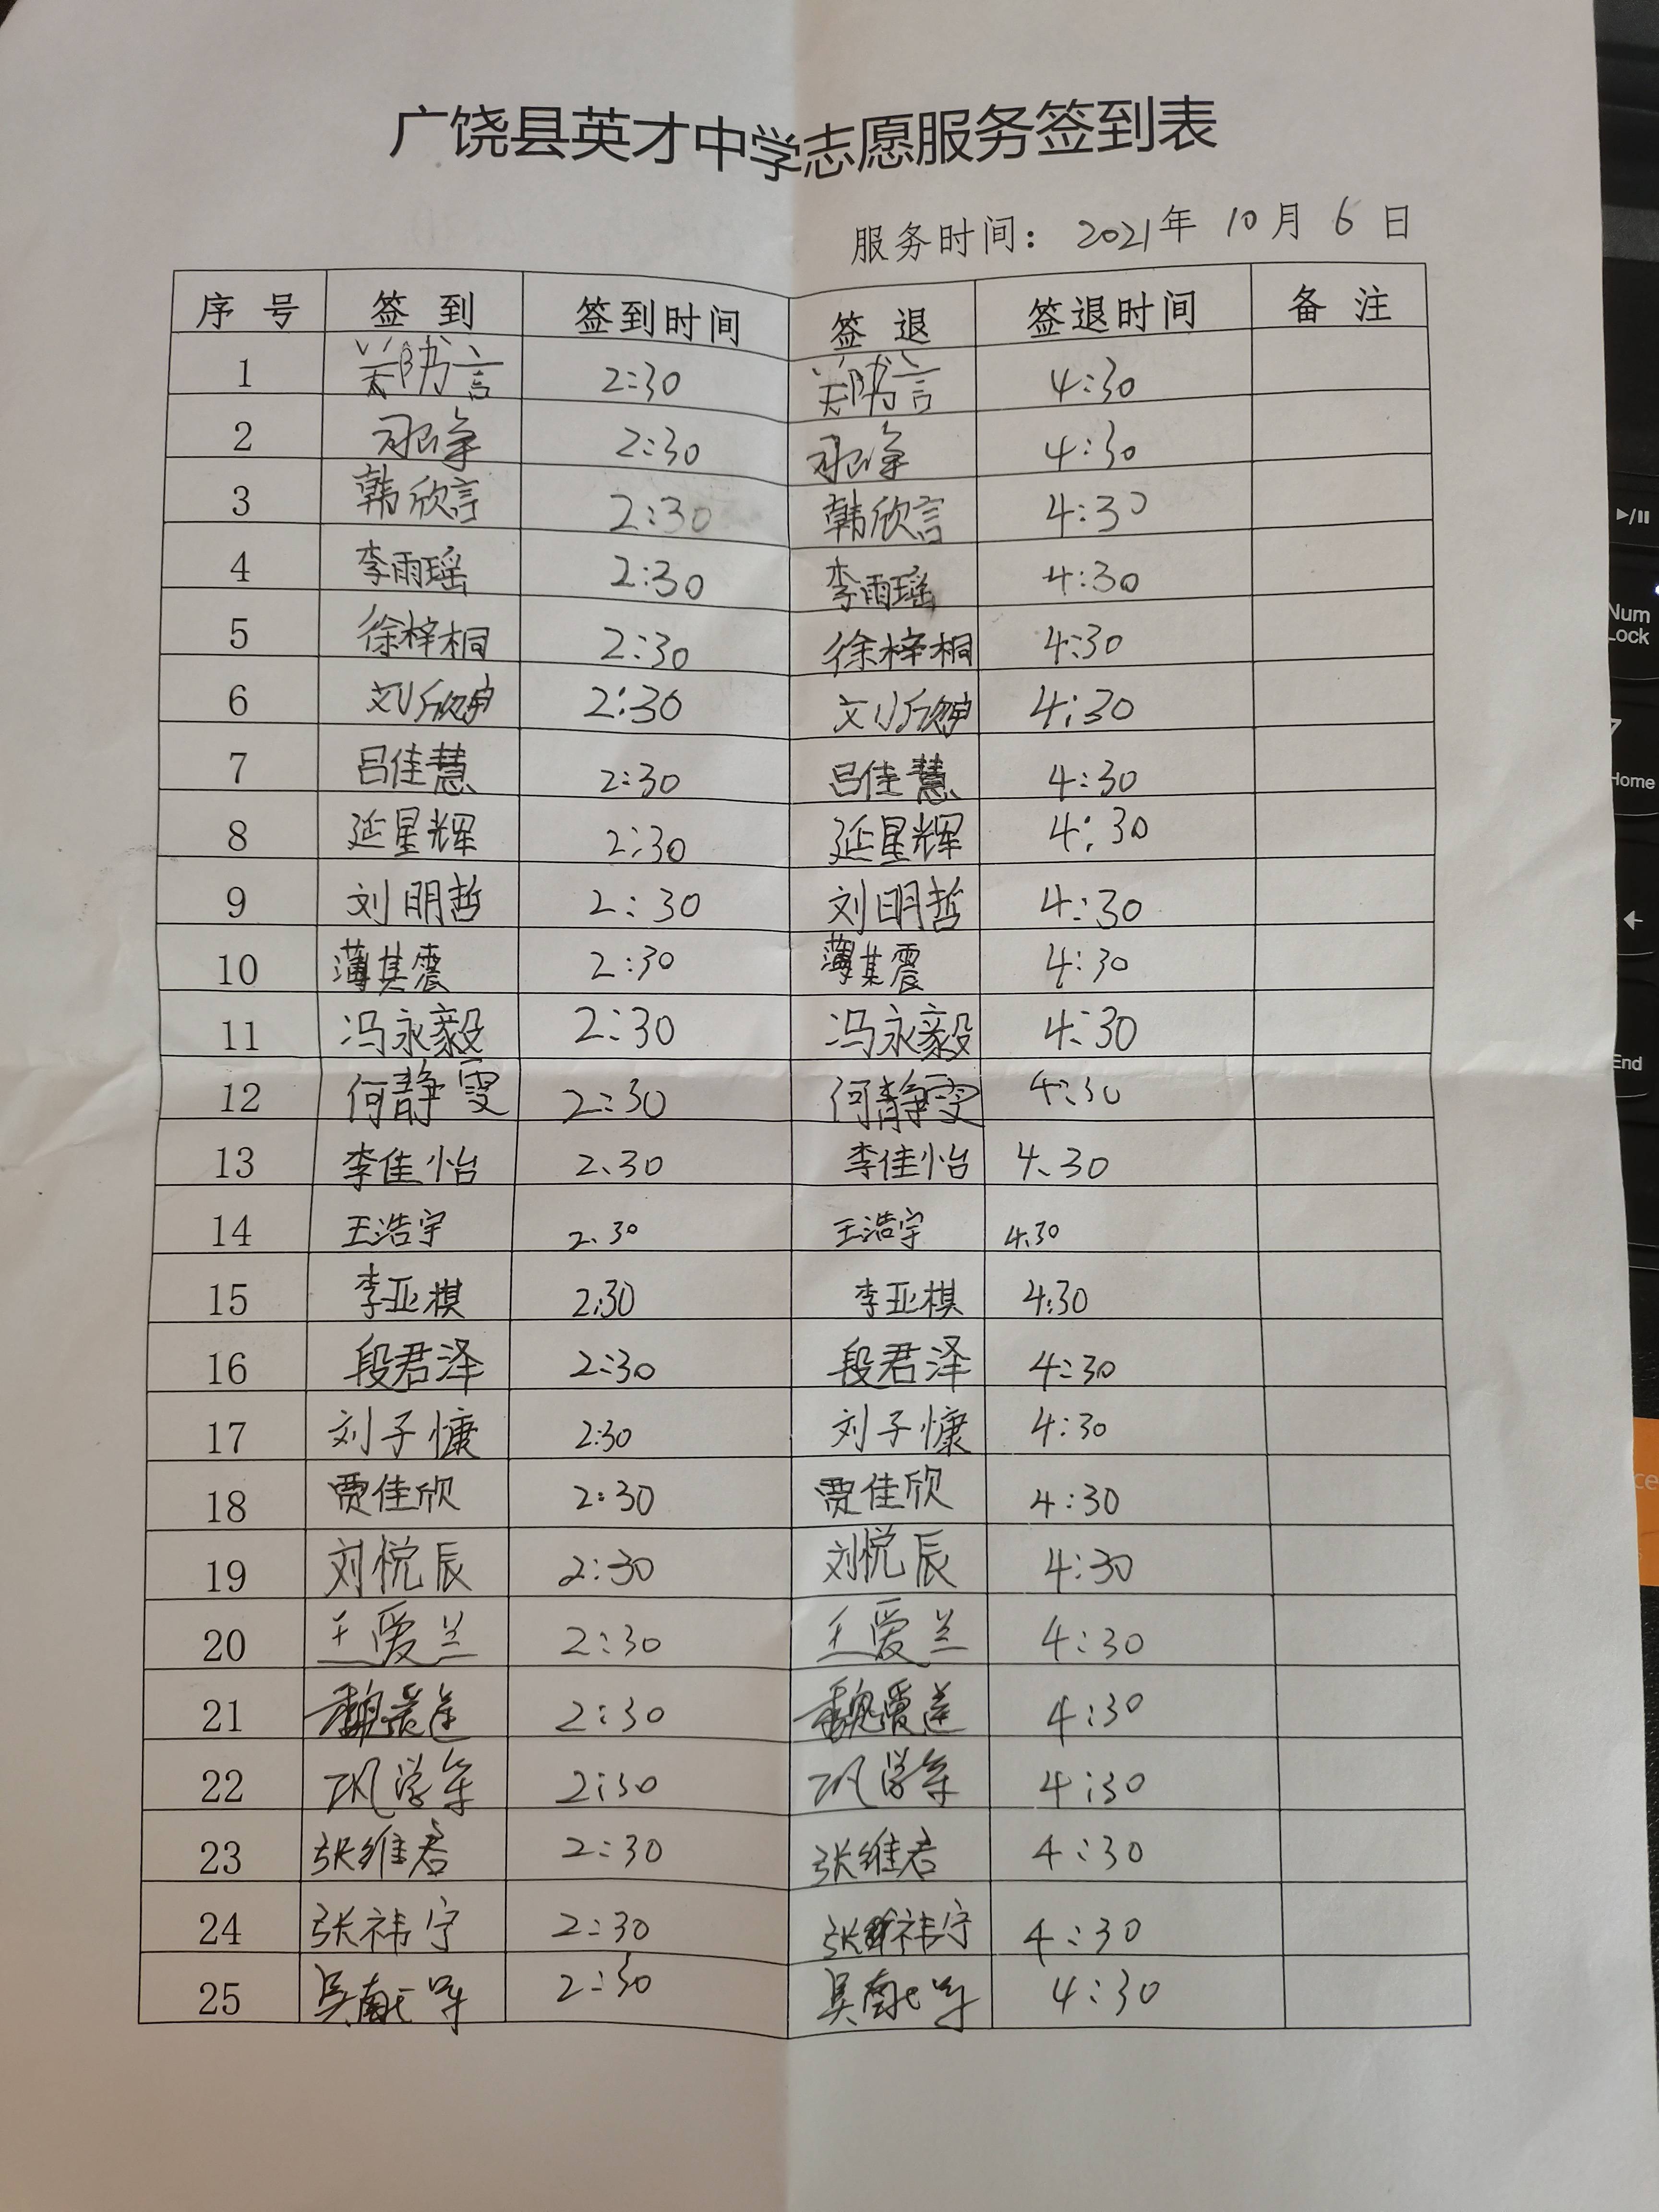 广饶县英才中学志愿服务签到表
服务时间： 2021年 10月 6日
序号 签到 签到时间 签退 签退时间 备注
1 2:30 4:30
2 2:30 4:30
3 韩欣言 2:30 韩欣言 4:30
4 李雨瑶 2:30 李雨瑶 4:30
5 徐梓桐 2:30 徐梓桐 4:30
6 2:30 4:30
7 吕佳慧 2:30 吕佳慧 4:30
8 延星辉 2:30 延星辉 4:30
9 刘明哲 2:30 刘明哲 4:30
10 薄其震 2:30 薄其震 4:30
11 冯永毅 2:30 冯永毅 4:30
12 何静雯 2:30 何静雯 4:30
13 李佳怡 2:30 李佳怡 4:30
14 王浩宇 2:30 王浩宇 4:30
15 李亚棋 2:30 李亚棋 4:30
16 段君泽 2:30 段君泽 4:30
17 刘子慷 2:30 刘子慷 4:30
18 贾佳欣 2:30 贾佳欣 4:30
19 刘悦辰 2:30 刘悦辰 4:30
20 王爱兰 2:30 王爱兰 4:30
21 2:30 魏爱莲 4:30
22 2:30 4:30
23 张维君 2:30 张维君 4:30
24 张祎宁 2:30 张祎宁 4:30
25 2:30 4:30
Num
Lock
Home
End